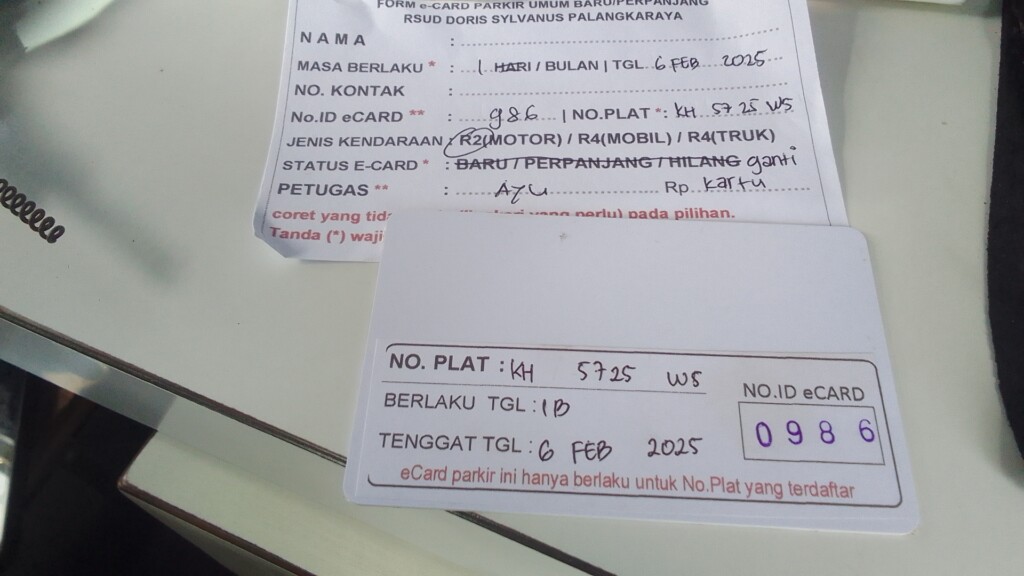 FORM e-CARD PARKIR UMUM BARU/PERPANJANG
RSUD DORIS SYLVANUS PALANGKARAYA
NAMA :
MASA BERLAKU * : 1 HARI / BULAN | TGL 6 FEB 2025
NO. KONTAK :
No.ID eCARD ** : 986 | NO.PLAT *: KH 5725 WS
JENIS KENDARAAN : R2(MOTOR) / R4(MOBIL) / R4(TRUK)
STATUS E-CARD * : BARU / PERPANJANG / HILANG ganti
PETUGAS ** : Ayu Rp kartu
coret yang perlu) pada pilihan.
Tanda (*) waji
NO. PLAT : KH 5725 WS
BERLAKU TGL : 1B
TENGGAT TGL : 6 FEB 2025
NO.ID eCARD
0986
eCard parkir ini hanya berlaku untuk No.Plat yang terdaftar